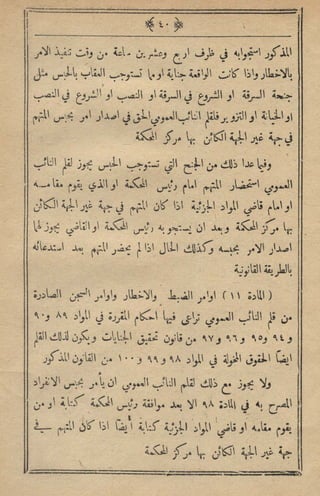 ٤٠
المذكور استجوابه في ظرف اربع وعشرين ساعة من وقت تنفيذ الامر
بالاخطار واذا كانت الواقعة جناية او مما تستوجب العقاب بالحبس مثل
جنحة السرقة او الشروع في السرقة او النصب او الشروع في النصب
او الخيانة او التزوير فلقلم النائب العمومي الحق في اصدار امر بحبس المتهم
في جهة غير الجهة الكائن بها مركز المحكمة
وفيما عدا ذلك من الجنح التي تستوجب الحبس يجوز لقلم النائب
العمومي استحضار المتهم امام رئيس المحكمة او الذي يقوم مقامه
او امام قاضي المواد الجزئية اذا كان المتهم في جهة غير الجهة الكائن
بها مركز المحكمة وبعد ان يستجوبه رئيس المحكمة او القاضي يجوز لها
اصدار الامر بحبسه وكذلك الحال اذا لم يحضر المتهم بعد استدعائه
بالطريقة القانونية
( المادة ١١ ) اوامر الضبط والاخطار واوامر السجن الصادرة
من قلم النائب العمومي تراعى فيها احكام المقررة في المواد ٨٩ و٩٠
و٩٤ و٩٥ و٩٦ و٩٧ من قانون تحقيق الجنايات ويكون لذلك القلم
ايضا الحقوق المخولة في المواد ٩٨ و٩٩ و١٠٠ من القانون المذكور
ولا يجوز مع ذلك لقلم النائب العمومي ان يأمر بحبس الانفراد
المصرح به في المادة ٩٨ الا بعد موافقة رئيس المحكمة كتابة او من
يقوم مقامه او قاضي المواد الجزئية كتابة أيضا اذا كان المتهم في
جهة غير الجهة الكائن بها مركز المحكمة